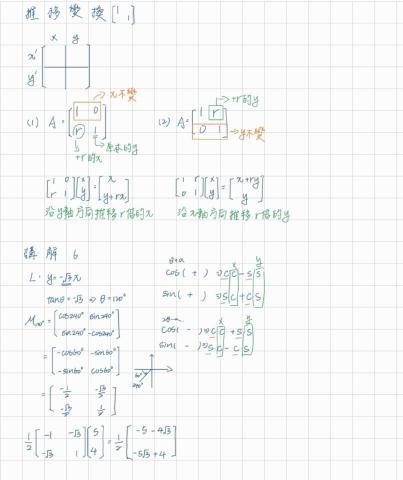 推移變換 [1 1]
x y
x'
y'
x不變
(1) A = [1 0
r 1]
原本的y
+r的x
(2) A = [1 r
0 1]
+r的y
y不變
[1 0
r 1] [x
y] = [x
y+rx]
沿y軸方向推移r倍的x
[1 r
0 1] [x
y] = [x+ry
y]
沿x軸方向推移r倍的y
講解 6
L: y=-√3x
tanθ = -√3 ⇒ θ=120°
= [cos240° sin240°
sin240° -cos240°]
= [-cos60° -sin60°
-sin60° cos60°]
= [-1/2 -√3/2
-√3/2 1/2]
1/2 [-1 -√3
-√3 1] [5
4] = 1/2 [-5-4√3
-5√3+4]
x y
cos( + ) ⇒ C C - S S
sin( + ) ⇒ S C + C S
x y
cos( - ) ⇒ C C + S S
sin( - ) ⇒ S C - C S
60°
240°